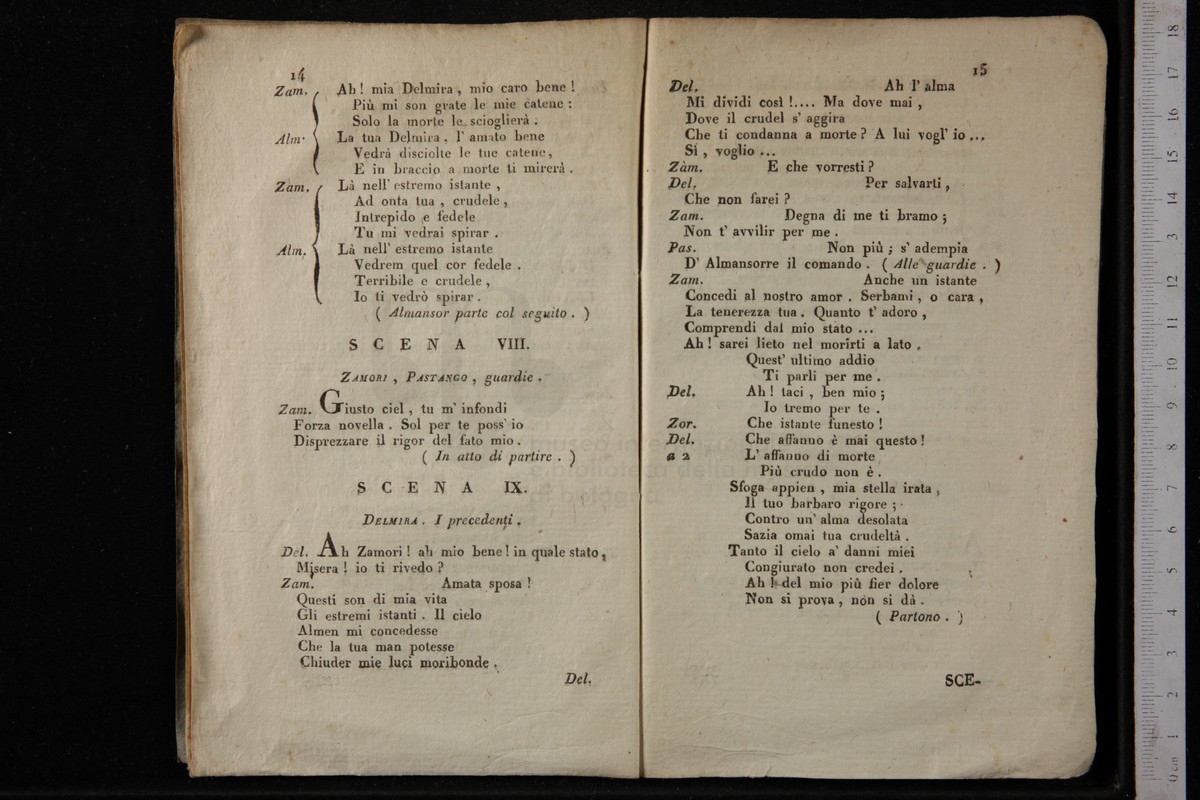 14
Zam. Ah ! mia Delmira , mio caro bene !
Più mi son grate le mie catene :
Solo la morte le scioglierà .
Alm. La tua Delmira , l' amato bene
Vedrà disciolte le tue catene,
E in braccio a morte ti mirerà .
Zam. Là nell' estremo istante ,
Ad onta tua , crudele ,
Intrepido e fedele
Tu mi vedrai spirar .
Alm. Là nell' estremo istante
Vedrem quel cor fedele .
Terribile e crudele ,
Io ti vedrò spirar .
( Almansor parte col seguito . )
SCENA VIII.
ZAMORI , PASTANGO , guardie .
Zam. Giusto ciel , tu m' infondi
Forza novella . Sol per te poss' io
Disprezzare il rigor del fato mio .
( In atto di partire . )
SCENA IX.
DELMIRA . I precedenti .
Del. Ah Zamori ! ah mio bene ! in quale stato ,
Misera ! io ti rivedo ?
Zam. Amata sposa !
Questi son di mia vita
Gli estremi istanti . Il cielo
Almen mi concedesse
Che la tua man potesse
Chiuder mie luci moribonde .
Del.
15
Del. Ah l' alma
Mi dividi così !.... Ma dove mai ,
Dove il crudel s' aggira
Che ti condanna a morte ? A lui vogl' io ...
Sì , voglio ...
Zam. E che vorresti ?
Del. Per salvarti ,
Che non farei ?
Zam. Degna di me ti bramo ;
Non t' avvilir per me .
Pas. Non più ; s' adempia
D' Almansorre il comando . ( Alle guardie . )
Zam. Anche un istante
Concedi al nostro amor . Serbami , o cara ,
La tenerezza tua . Quanto t' adoro ,
Comprendi dal mio stato ...
Ah ! sarei lieto nel morirti a lato .
Quest' ultimo addio
Ti parli per me .
Del. Ah ! taci , ben mio ;
Io tremo per te .
Zor. Che istante funesto !
Del. Che affanno è mai questo !
a 2 L' affanno di morte
Più crudo non è .
Sfoga appien , mia stella irata ,
Il tuo barbaro rigore ;
Contro un' alma desolata
Sazia omai tua crudeltà .
Tanto il cielo a' danni miei
Congiurato non credei .
Ah ! del mio più fier dolore
Non si prova , non si dà .
( Partono . )
SCE-
museo inte
biblioteca della m
di bologna
0 cm 1 2 3 4 5 6 7 8 9 10 11 12 13 14 15 16 17 18